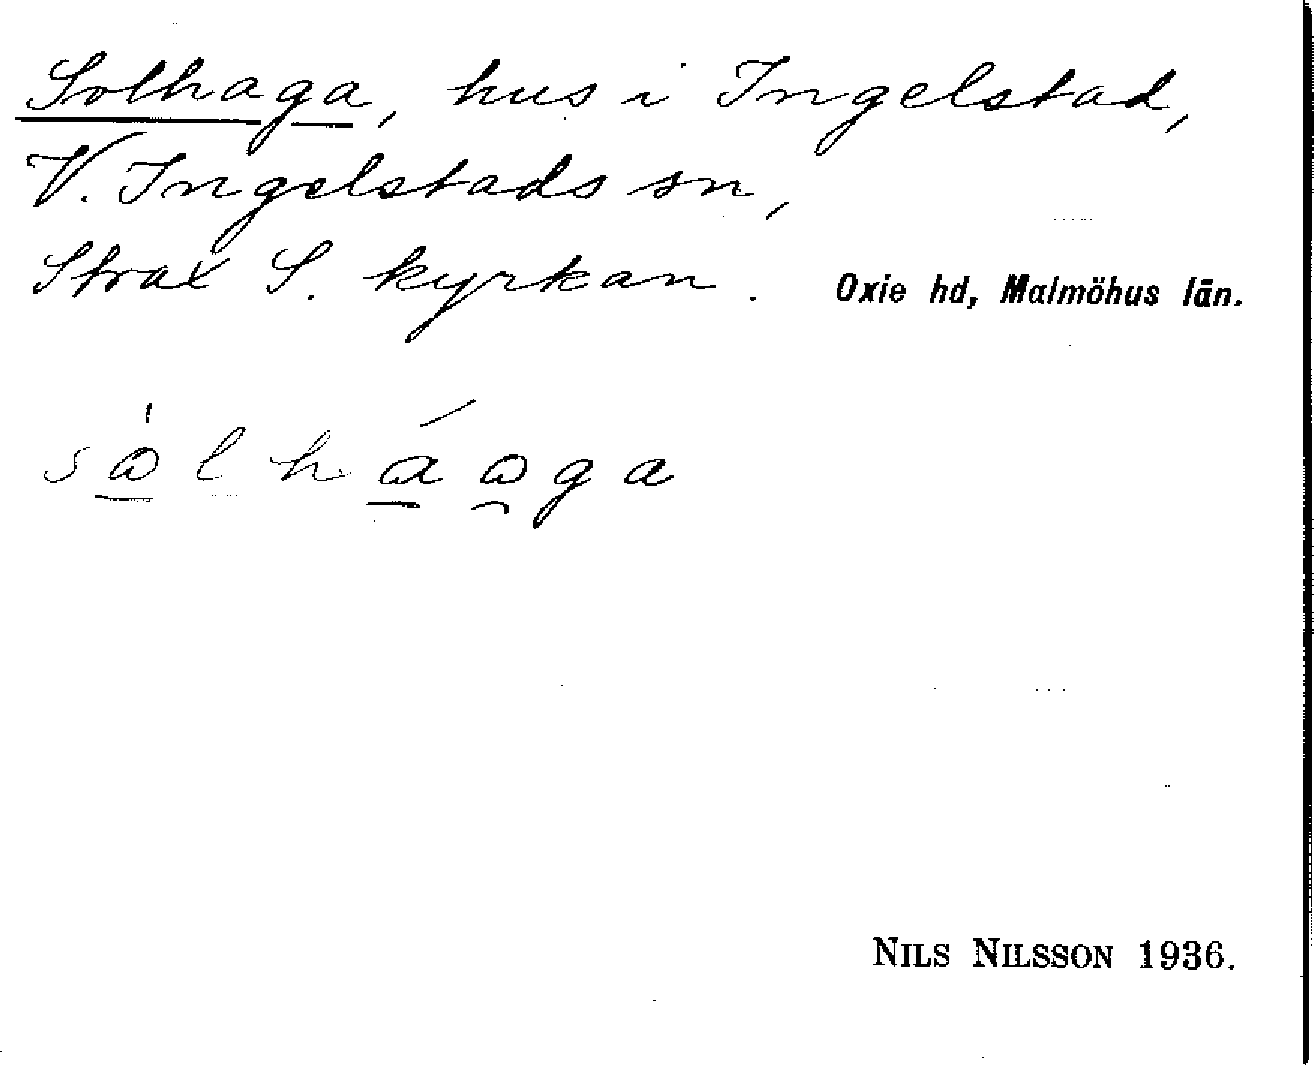 Solhaga, hus i Ingelstad,
V. Ingelstads sn,
Strax S. kyrkan. Oxie hd, Malmöhus län.
NILS NILSSON 1936.